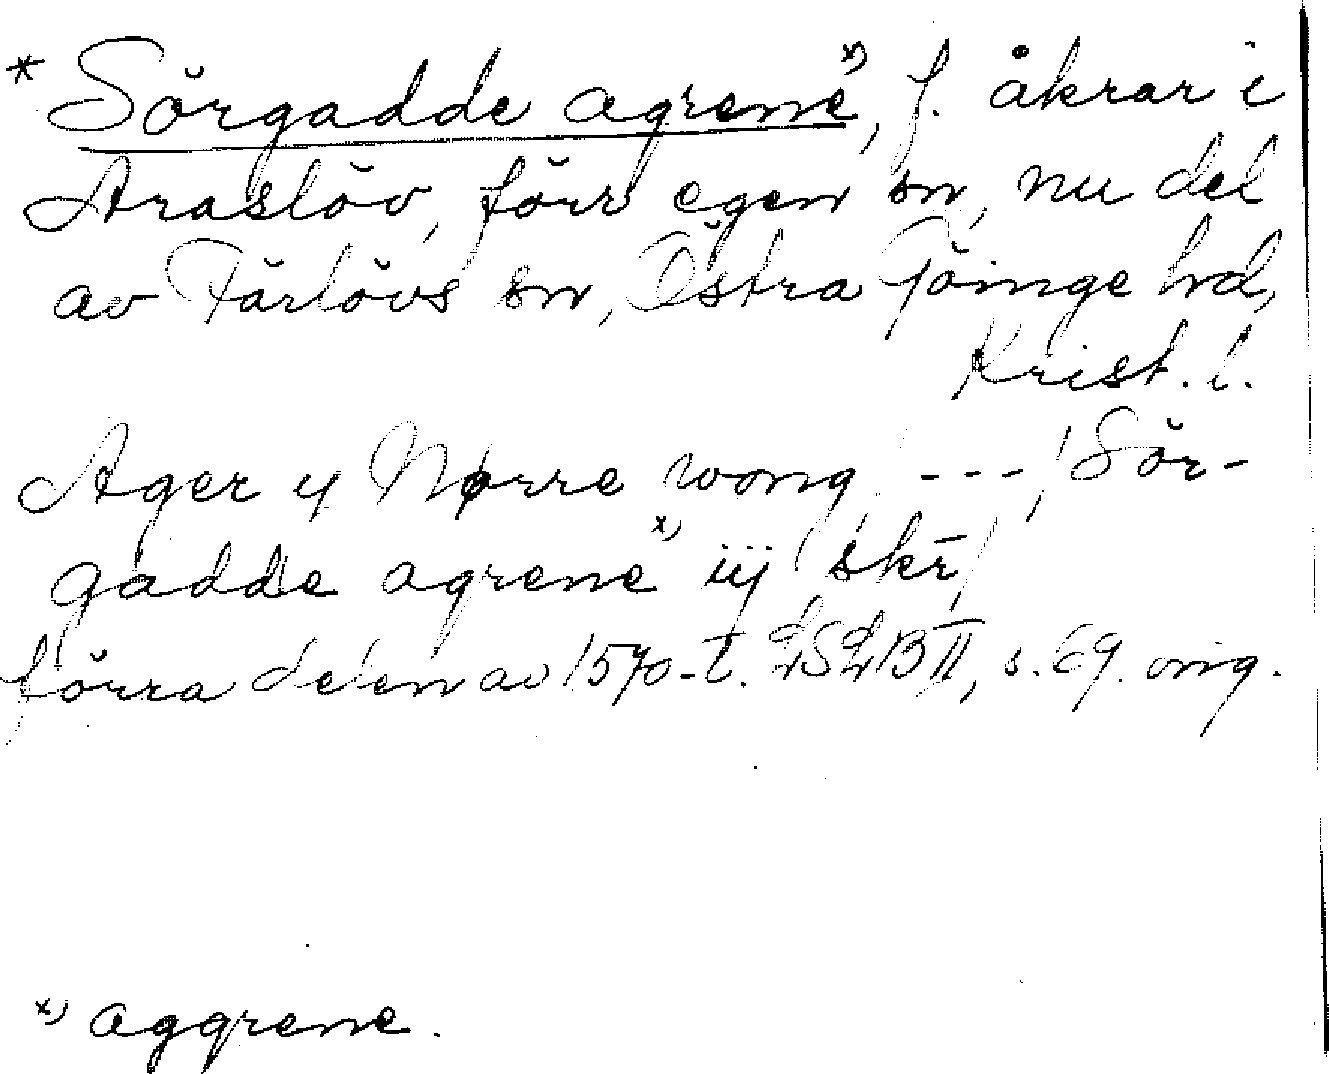 * Sörgadde agrene x), f. åkrar i
Araslöv, förr egen sn, nu del
av Färlövs sn, Östra Göinge hd,
Krist. l.
Ager y Nørre wong, ---, Sör-
gadde agrene x) iij skr̄,
förra delen av 1570-t. LSLB II, s. 69. orig.
x) aggrene.